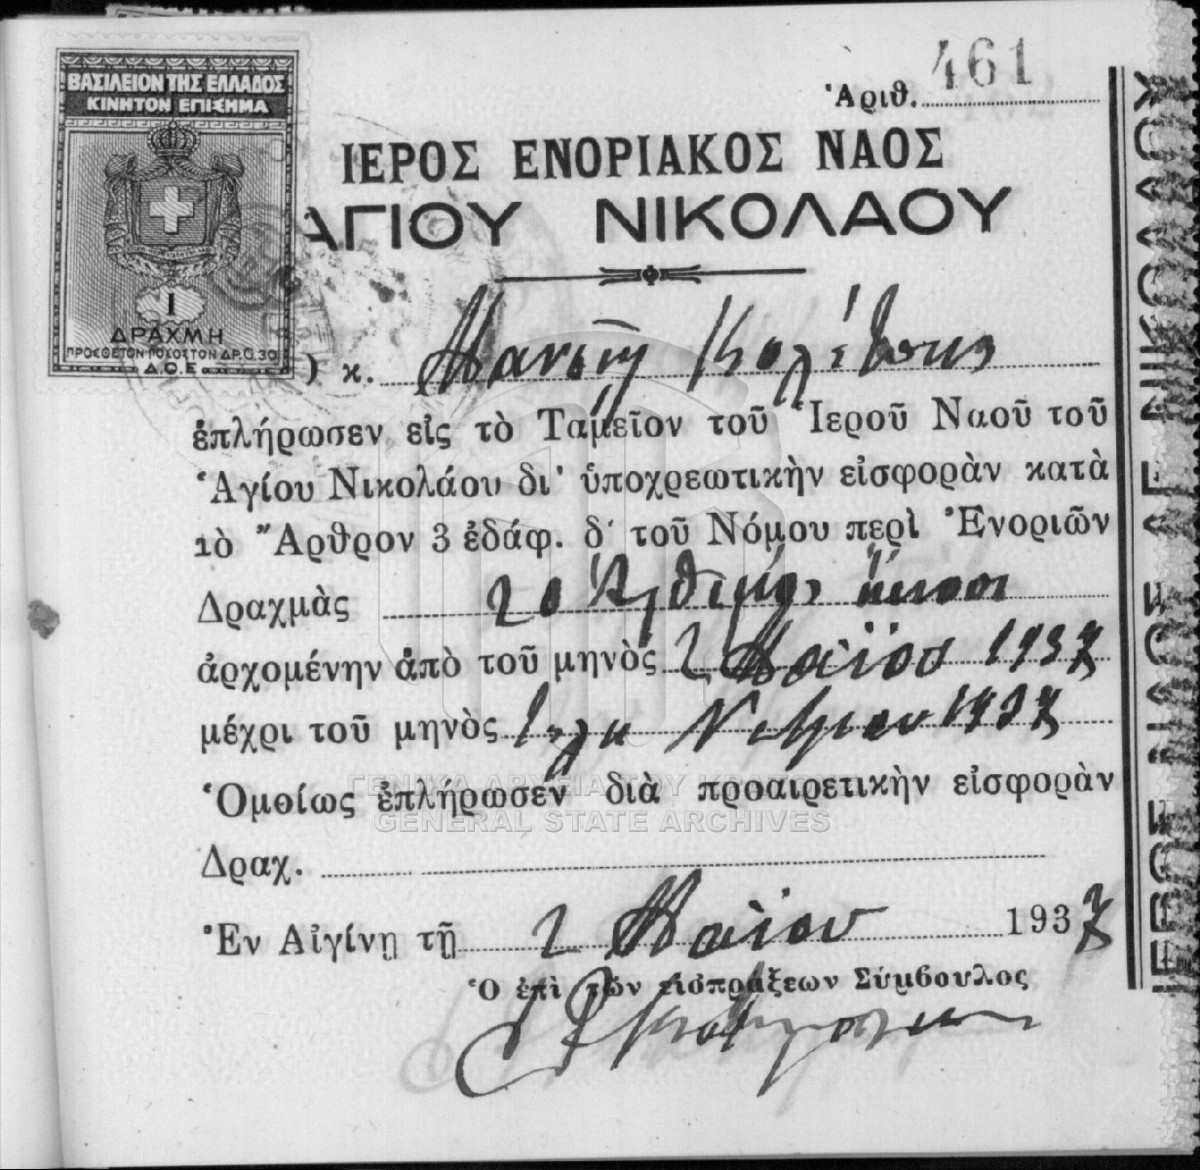 ΒΑΣΙΛΕΙΟΝ ΤΗΣ ΕΛΛΑΔΟΣ
ΚΙΝΗΤΟΝ ΕΠΙΣΗΜΑ
1
ΔΡΑΧΜΗ
ΠΡΟΣΘΕΤΟΝ ΠΟΣΟΣΤΟΝ ΔΡ. 0.30
Δ.Ο.Ε
Ἀριθ. 461
ΙΕΡΟΣ ΕΝΟΡΙΑΚΟΣ ΝΑΟΣ
ΑΓΙΟΥ ΝΙΚΟΛΑΟΥ
κ.
ἐπλήρωσεν εἰς τὸ Ταμεῖον τοῦ Ἱεροῦ Ναοῦ τοῦ
Ἁγίου Νικολάου δι' ὑποχρεωτικὴν εἰσφορὰν κατὰ
τὸ Ἄρθρον 3 ἐδάφ. δ' τοῦ Νόμου περὶ Ἐνοριῶν
Δραχμὰς 20 εἴκοσι
ἀρχομένην ἀπὸ τοῦ μηνὸς 2 Μαΐου 1937
μέχρι τοῦ μηνὸς 1937
Ὁμοίως ἐπλήρωσεν διὰ προαιρετικὴν εἰσφορὰν
Δραχ.
Ἐν Αἰγίνῃ τῇ 2 Μαΐου 1937
Ὁ ἐπὶ τῶν εἰσπράξεων Σύμβουλος
ΓΕΝΙΚΑ ΑΡΧΕΙΑ ΤΟΥ ΚΡΑΤΟΥΣ
GENERAL STATE ARCHIVES